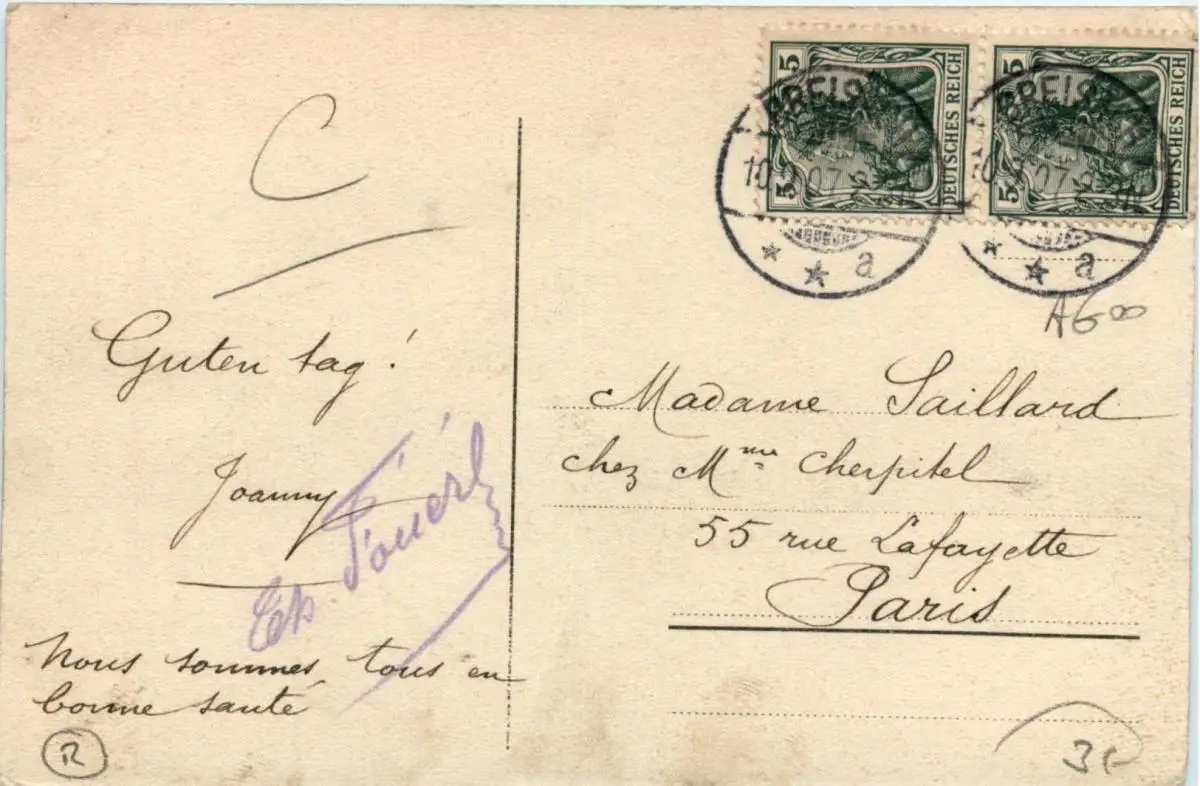 C
Guten tag!
Joanny
Nous sommes tous en
bonne santé
R
5 5 DEUTSCHES REICH
5 5 DEUTSCHES REICH
a
a
A600
Madame Saillard
chez Mme Cherpitel
55 rue Lafayette
Paris